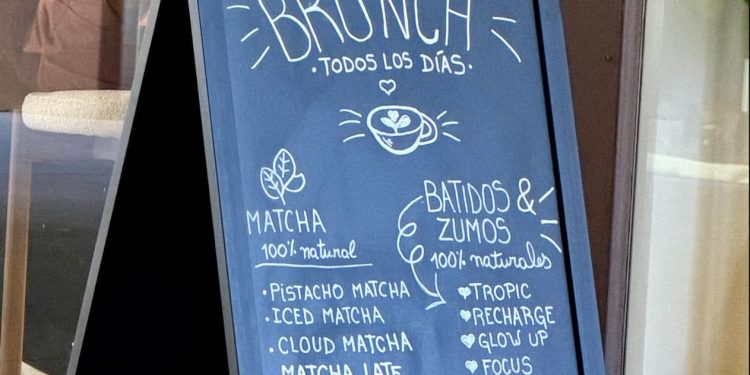 BRUNCH
· TODOS LOS DÍAS ·
MATCHA
100% natural
· PISTACHO MATCHA
· ICED MATCHA
· CLOUD MATCHA
MATCHA LATE
BATIDOS &
ZUMOS
100% naturales
TROPIC
RECHARGE
GLOW UP
FOCUS